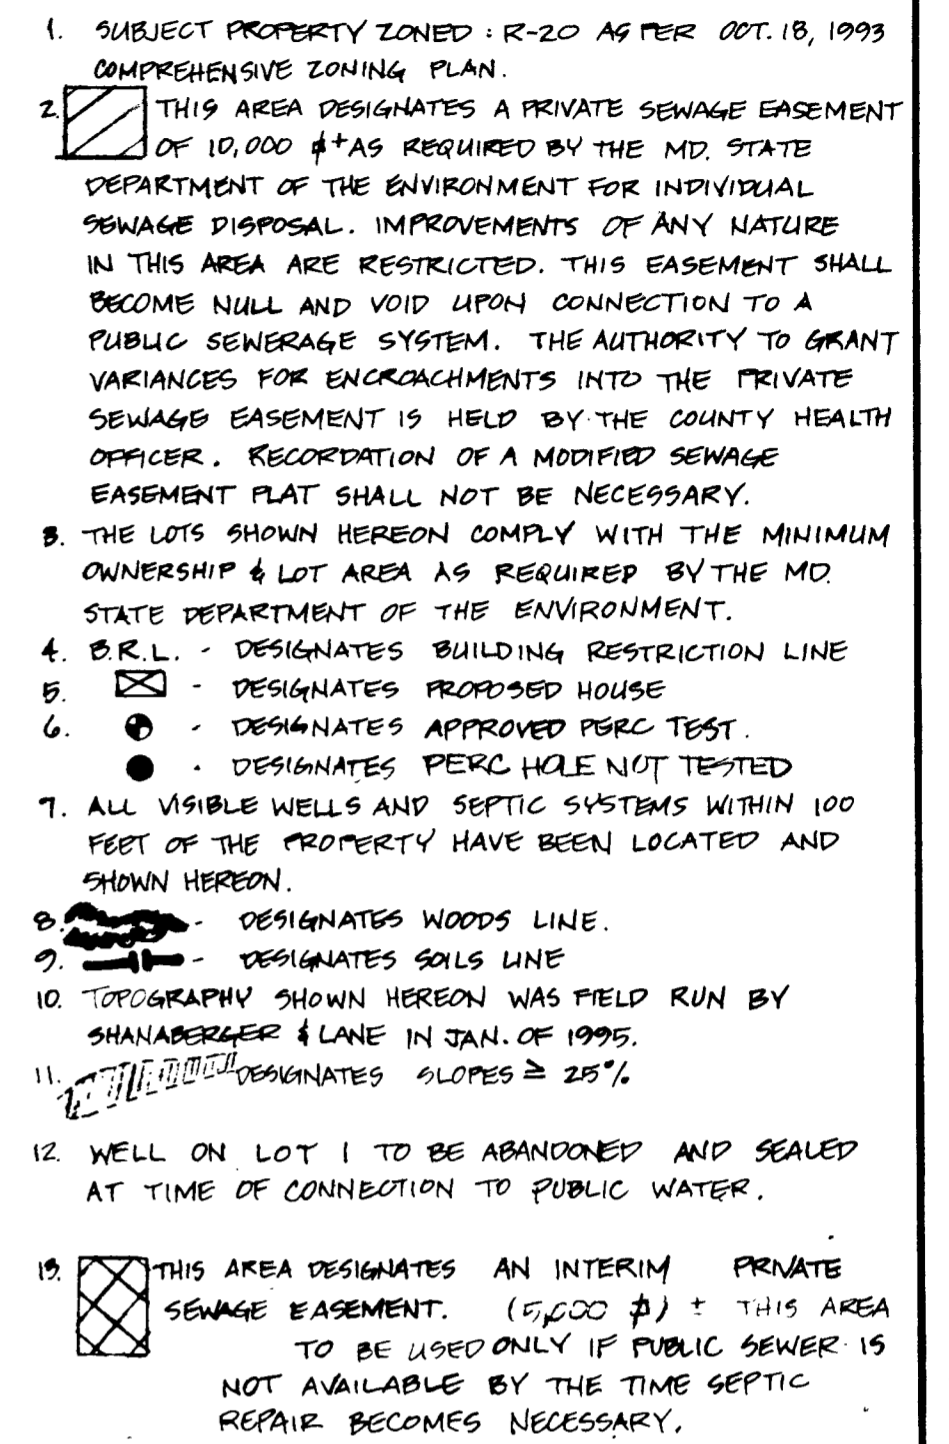 1. SUBJECT PROPERTY ZONED : R-20 AS PER OCT. 18, 1993
COMPREHENSIVE ZONING PLAN.
2. THIS AREA DESIGNATES A PRIVATE SEWAGE EASEMENT
OF 10,000 ⏀+ AS REQUIRED BY THE MD. STATE
DEPARTMENT OF THE ENVIRONMENT FOR INDIVIDUAL
SEWAGE DISPOSAL. IMPROVEMENTS OF ANY NATURE
IN THIS AREA ARE RESTRICTED. THIS EASEMENT SHALL
BECOME NULL AND VOID UPON CONNECTION TO A
PUBLIC SEWERAGE SYSTEM. THE AUTHORITY TO GRANT
VARIANCES FOR ENCROACHMENTS INTO THE PRIVATE
SEWAGE EASEMENT IS HELD BY THE COUNTY HEALTH
OFFICER. RECORDATION OF A MODIFIED SEWAGE
EASEMENT PLAT SHALL NOT BE NECESSARY.
3. THE LOTS SHOWN HEREON COMPLY WITH THE MINIMUM
OWNERSHIP & LOT AREA AS REQUIRED BY THE MD.
STATE DEPARTMENT OF THE ENVIRONMENT.
4. B.R.L. - DESIGNATES BUILDING RESTRICTION LINE
5. - DESIGNATES PROPOSED HOUSE
6. - DESIGNATES APPROVED PERC TEST.
- DESIGNATES PERC HOLE NOT TESTED
7. ALL VISIBLE WELLS AND SEPTIC SYSTEMS WITHIN 100
FEET OF THE PROPERTY HAVE BEEN LOCATED AND
SHOWN HEREON.
8. - DESIGNATES WOODS LINE.
9. - DESIGNATES SOILS LINE
10. TOPOGRAPHY SHOWN HEREON WAS FIELD RUN BY
SHANABERGER & LANE IN JAN. OF 1995.
11. DESIGNATES SLOPES ≥ 25%
12. WELL ON LOT 1 TO BE ABANDONED AND SEALED
AT TIME OF CONNECTION TO PUBLIC WATER.
13. THIS AREA DESIGNATES AN INTERIM PRIVATE
SEWAGE EASEMENT. (5,000 ⏀) ± THIS AREA
TO BE USED ONLY IF PUBLIC SEWER IS
NOT AVAILABLE BY THE TIME SEPTIC
REPAIR BECOMES NECESSARY.